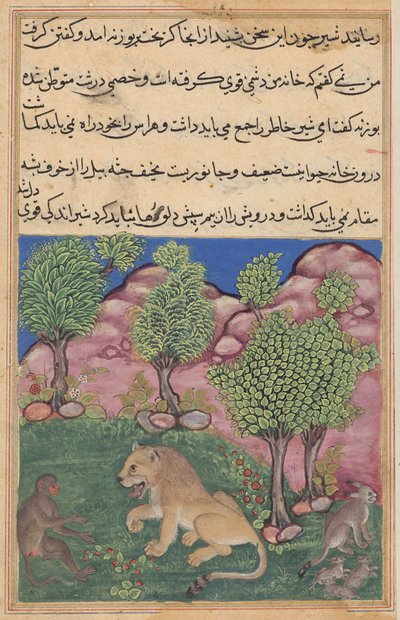 رسانید شیر چون این سخن شنید از انجا کریخت بوزنه امد و کفتن کرفت
من نمی کفتم که خانه من دشمنی قوی کرفته است و خصمی درشت متوطن شده
بوزنه کفت ای شیر خاطر را جمع می باید داشت و هراس را بخود راه نمی باید کماشت
درون خانه ضعیف و جانوریست نحیف جثه را از
مقام نمی باید کذاشت و درویش را از بیم سپش دلق رها نباید کرد شیر اندکی قوی دل شد